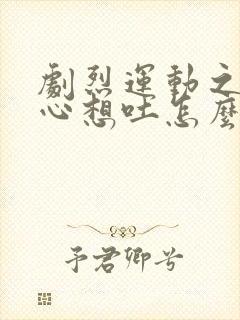 劇烈運動之
心想吐怎麼
予君卿兮